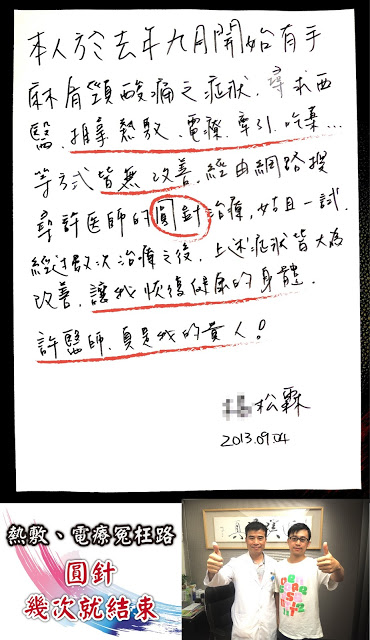 本人於去年九月開始有手
麻肩頸酸痛之症狀.尋求西
醫.推拿熱敷.電療.牽引.吃藥...
等方式皆無改善.經由網路搜
尋許医師的圓針治療,姑且一試.
經過數次治療之後,上述症狀皆大為
改善.讓我恢復健康的身體.
許醫師.真是我的貴人!
松霖
2013.09.04
熱敷、電療冤枉路
圓針
幾次就結束